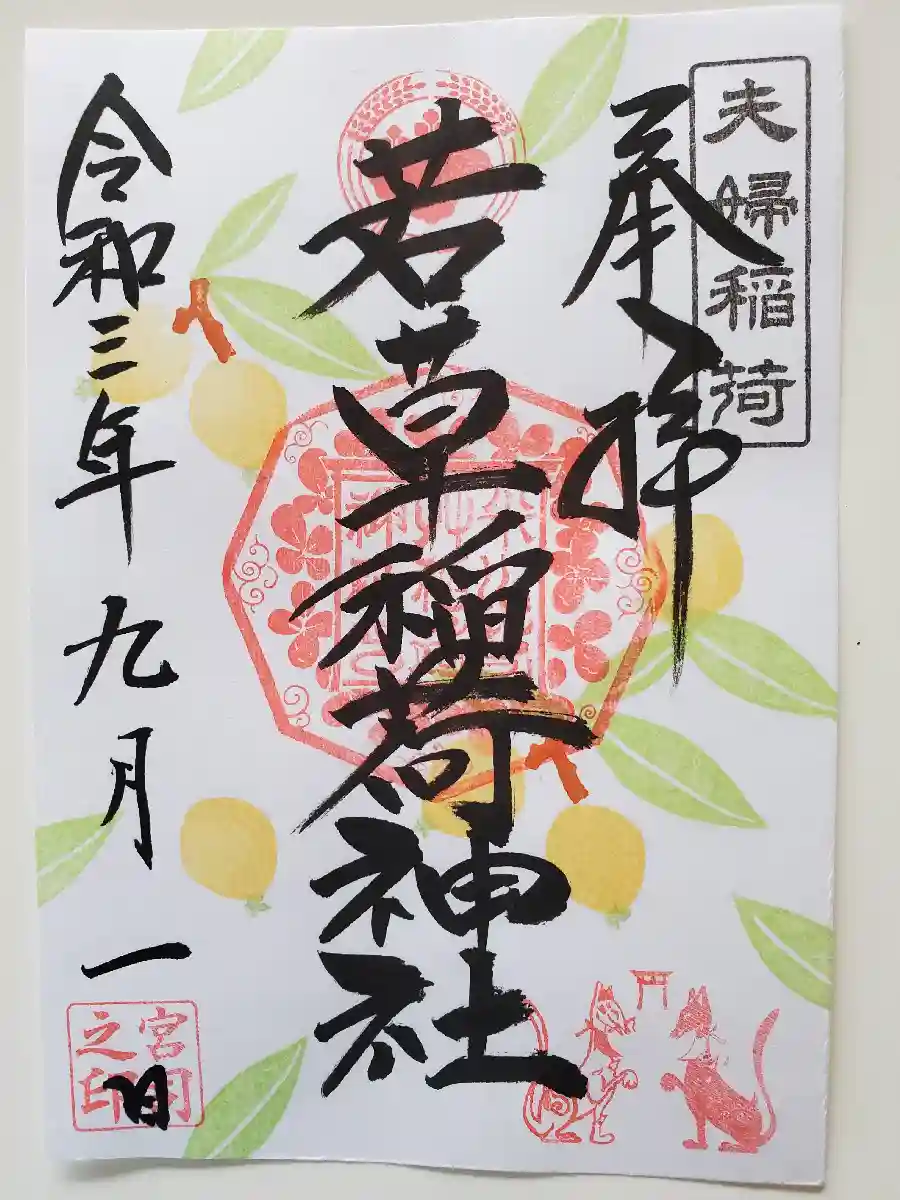 夫婦稲荷
奉拝
若草稲荷神社
令和三年九月一日
宮司
之印